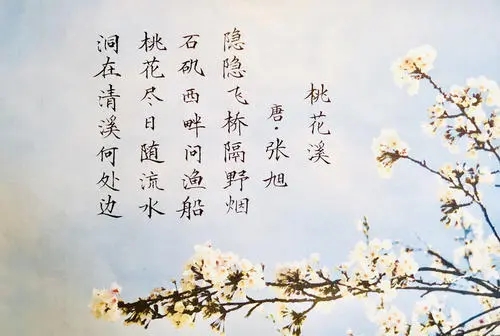 桃花溪
唐·张旭
隐隐飞桥隔野烟
石矶西畔问渔船
桃花尽日随流水
洞在清溪何处边